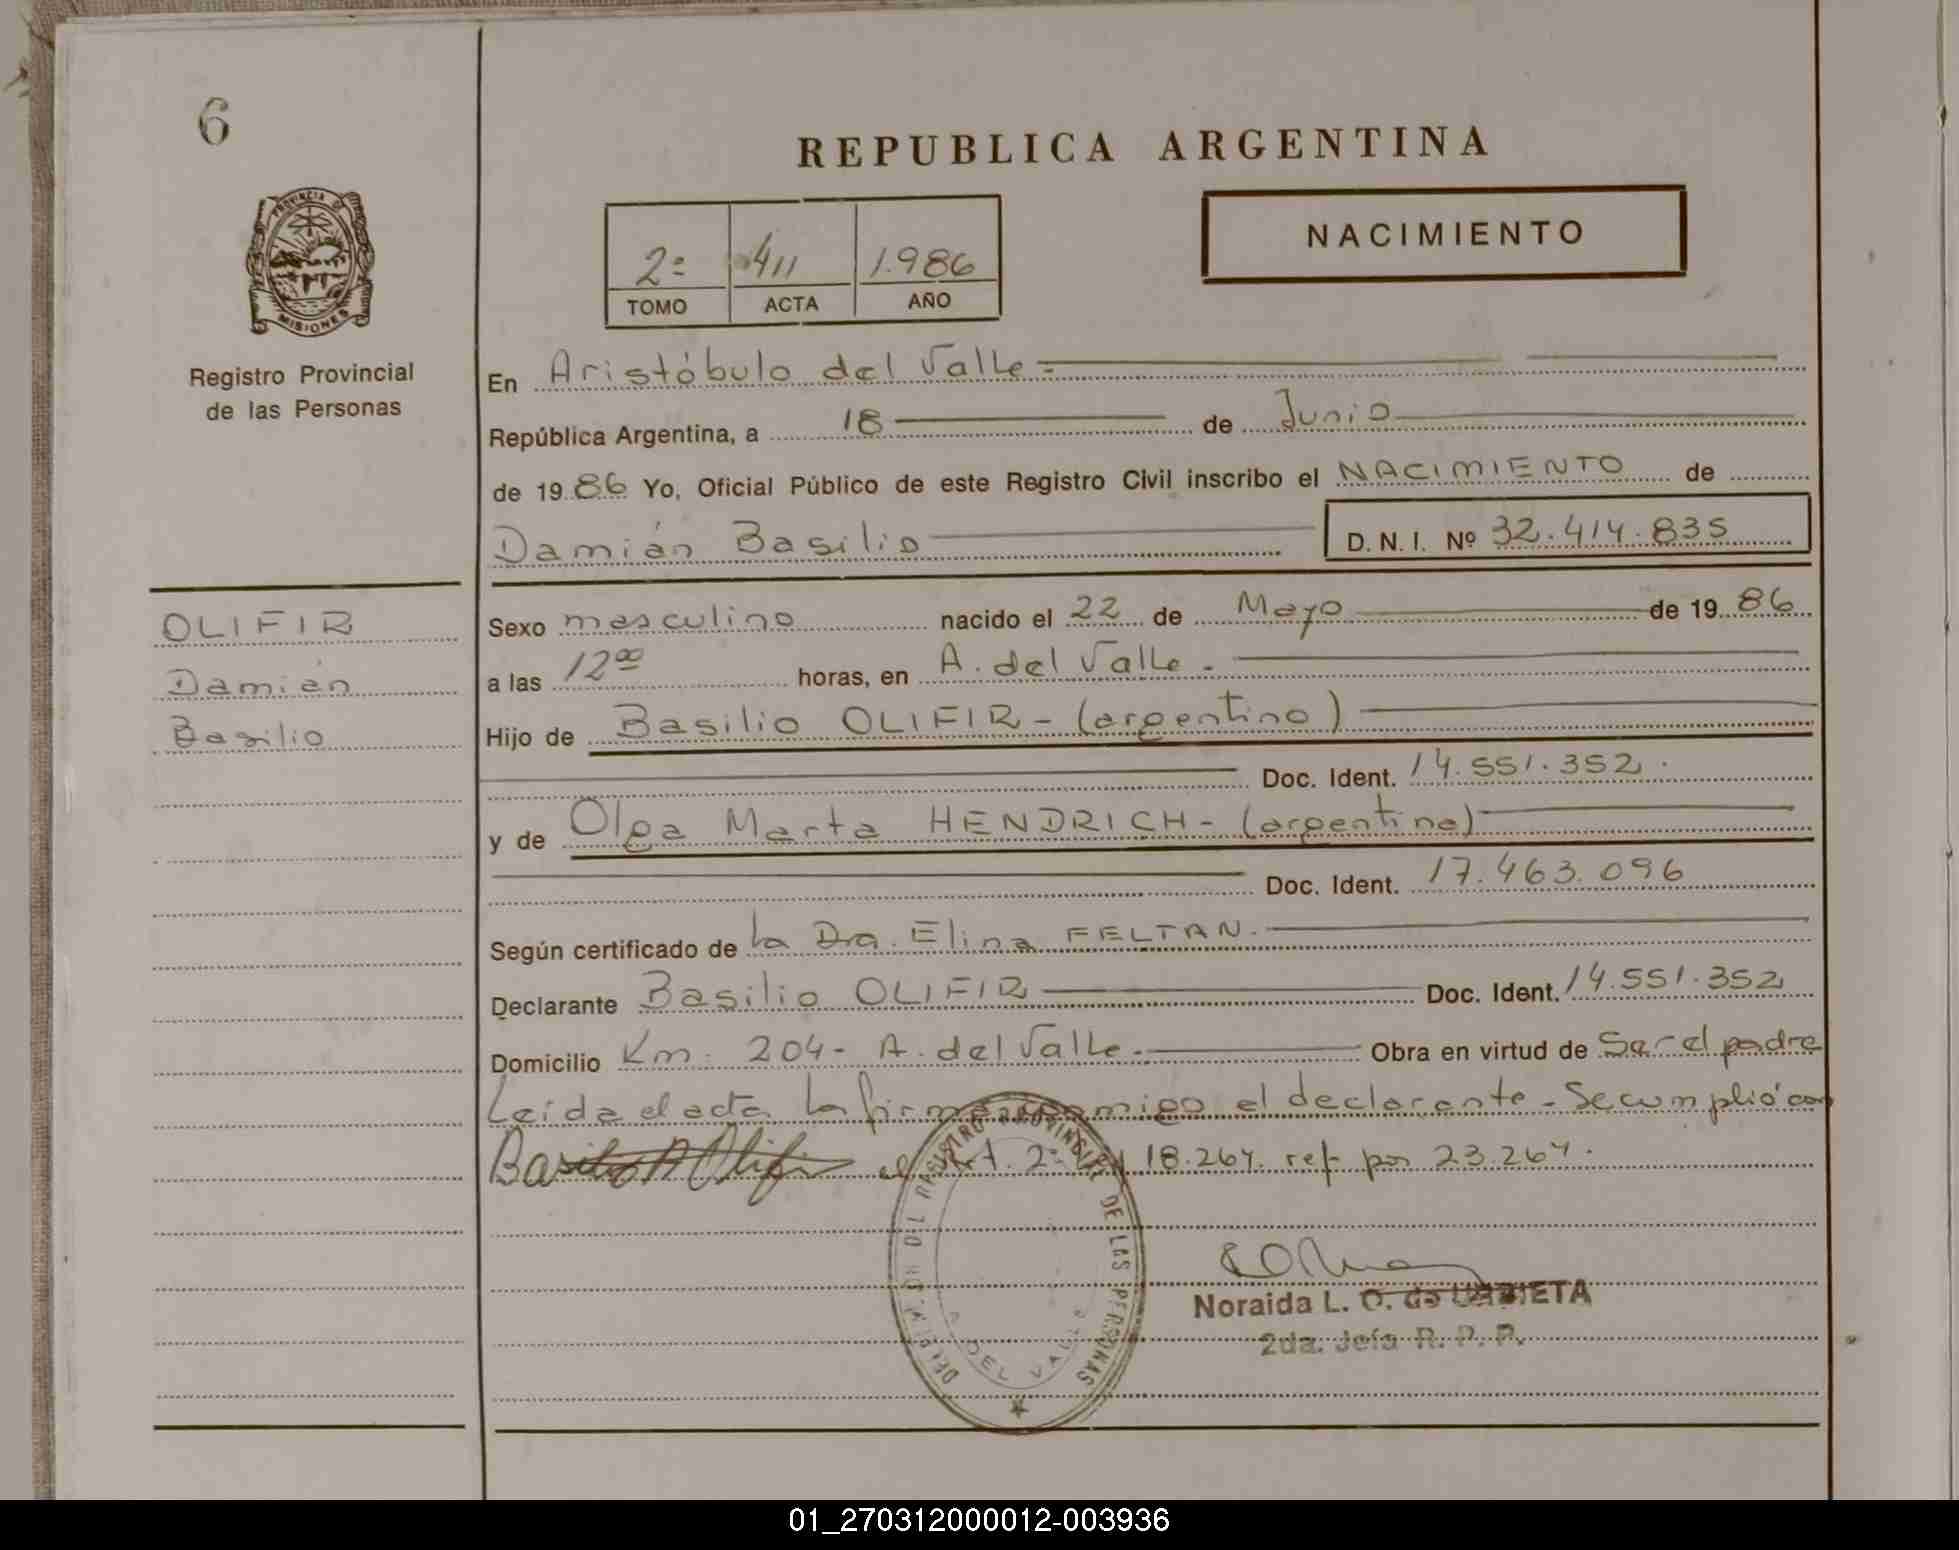 6
REPUBLICA ARGENTINA
PROVINCIA DE
MISIONES
Registro Provincial
de las Personas
2º 411 1.986
TOMO ACTA AÑO
NACIMIENTO
En Aristóbulo del Valle -
República Argentina, a 18 de Junio
de 19 86 Yo, Oficial Público de este Registro Civil inscribo el NACIMIENTO de
Damián Basilio D.N.I. Nº 32.414.835
OLIFIR
Damián
Basilio
Sexo masculino nacido el 22 de Mayo de 19 86
a las 12 00 horas, en A. del Valle -
Hijo de Basilio OLIFIR - (argentino)
Doc. Ident. 14.551.352.
y de Olga Marta HENDRICH - (argentina)
Doc. Ident. 17.463.096
Según certificado de la Dra. Elina FELTAN.
Declarante Basilio OLIFIR Doc. Ident. 14.551.352
Domicilio Km. 204 - A. del Valle - Obra en virtud de Ser el padre
Leída el acta la firma conmigo el declarante - Se cumplió con
Basilio Olifir el Art. 2º 18.264. ref por 23.264.
DEL REGISTRO PROVINCIAL DE LAS PERSONAS
A. DEL VALLE
Noraida L. O. de URRIETA
2da. Jefa R. P. P.
01_270312000012-003936